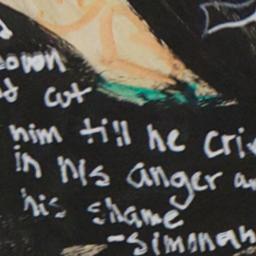 cut
him till he cri
in his anger a
his shame
-simonan